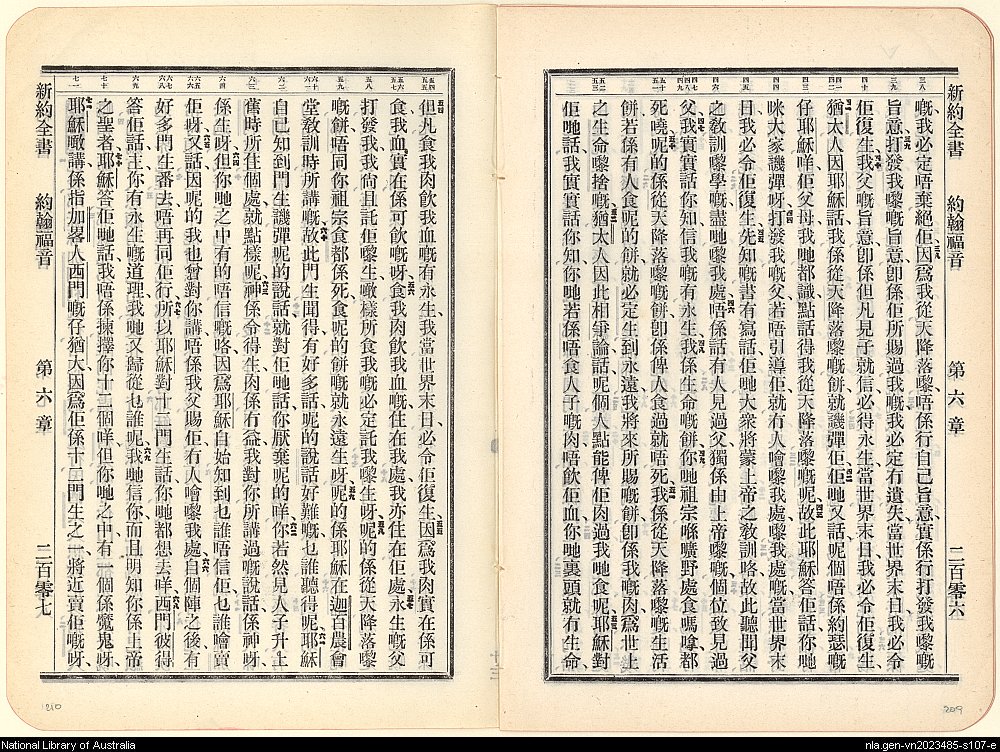 新約全書 約翰福音 第六章 二百零六
嘅我必定唔棄絕佢因爲我從天降落嚟唔係行自己旨意實係行打發我嚟嘅
旨意打發我嚟嘅旨意卽係佢所賜過我嘅我必定冇遺失當世界末日我必令
佢復生我父嘅旨意卽係但凡見子就信必得永生當世界末日我必令佢復生
猶太人因耶穌話我係從天降落嚟嘅餅就譏彈佢佢哋又話呢個唔係約瑟嘅
仔耶穌咩佢父母我哋都識點話得我從天降落嚟嘅呢故此耶穌答佢話你哋
咪大家譏彈呀打發我嘅父若唔引導佢就冇人噲嚟我處嚟我處嘅當世界末
日我必令佢復生先知嘅書有寫話佢哋大衆將蒙上帝之敎訓咯故此聽聞父
之敎訓嚟學嘅盡哋嚟我處唔係話有人見過父獨係由上帝嚟嘅個位致見過
父我實實話你知信我嘅有永生我係生命嘅餅你哋祖宗喺曠野處食嗎嗱都
死曉呢的係從天降落嚟嘅餅卽係俾人食過就唔死我係從天降落嚟嘅生活
餅若係有人食呢的餅就必定生到永遠我將來所賜嘅餅卽係我嘅肉爲世上
之生命嚟捨嘅猶太人因此相爭論話呢個人點能俾佢肉過我哋食呢耶穌對
佢哋話我實實話你知你哋若係唔食人子嘅肉唔飲佢血你哋裏頭就冇生命
新約全書 約翰福音 第六章 二百零七
但凡食我肉飲我血嘅有永生我當世界末日必令佢復生因爲我肉實在係可
食我血實在係可飲嘅呀食我肉飲我血嘅住在我處我亦住在佢處永生嘅父
打發我我尙且託佢嚟生噉樣所食我嘅必定託我嚟生呀呢的係從天降落嚟
嘅餅唔同你祖宗食都係死食呢的餅嘅就永遠生呀呢的係耶穌在迦百農會
堂敎訓時所講嘅故此門生聞得有好多話呢的說話好難嘅乜誰聽得呢耶穌
自己知到門生譏彈呢的說話就對佢哋話你厭棄呢的咩你若然見人子升上
舊時所住個處就點樣呢神係令得生肉係冇益我對你所講過嘅說話係神呀
係生呀但你哋之中有的唔信嘅咯因爲耶穌自始知到乜誰唔信佢乜誰噲賣
佢呀又話因呢的我也曾對你講唔係我父賜佢冇人噲嚟我處自個陣之後有
好多門生番去唔再同佢行所以耶穌對十二門生話你哋都想去咩西門彼得
答佢話主你有永生嘅道理我哋又歸從乜誰呢我哋信你而且明知你係上帝
之聖者耶穌答佢哋話我唔係揀擇你十二個咩但你哋之中有一個係魔鬼呀
耶穌噉講係指加畧人西門嘅仔猶大因爲佢係十二門生之一將近賣佢嘅呀
210
209
National Library of Australia
nla.gen-vn2023485-s107-e